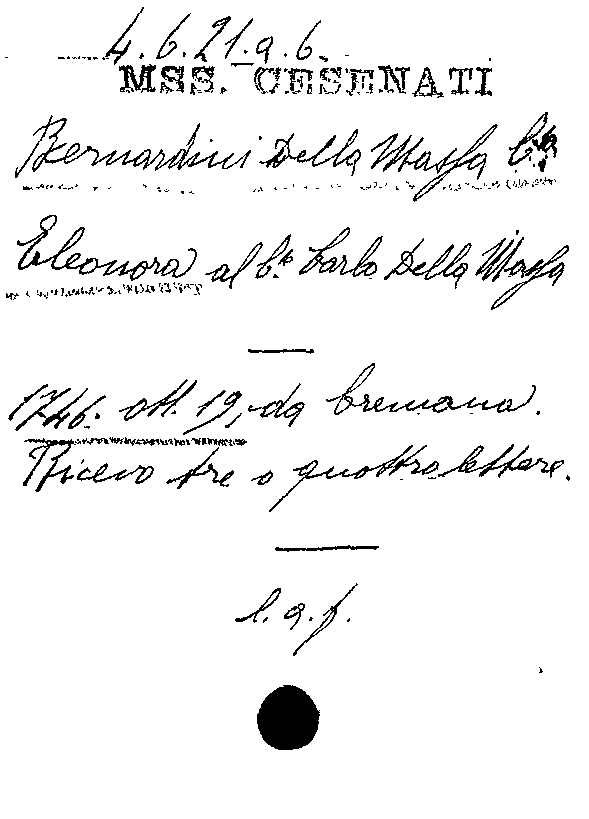 4.6.21.a.6.
MSS. CESENATI
Bernardini Della Massa C.ssa
Eleonora al C.te Carlo Della Massa
1746. ott. 19, da Cremana.
Ricevo tre o quattro lettere.
l.a.f.